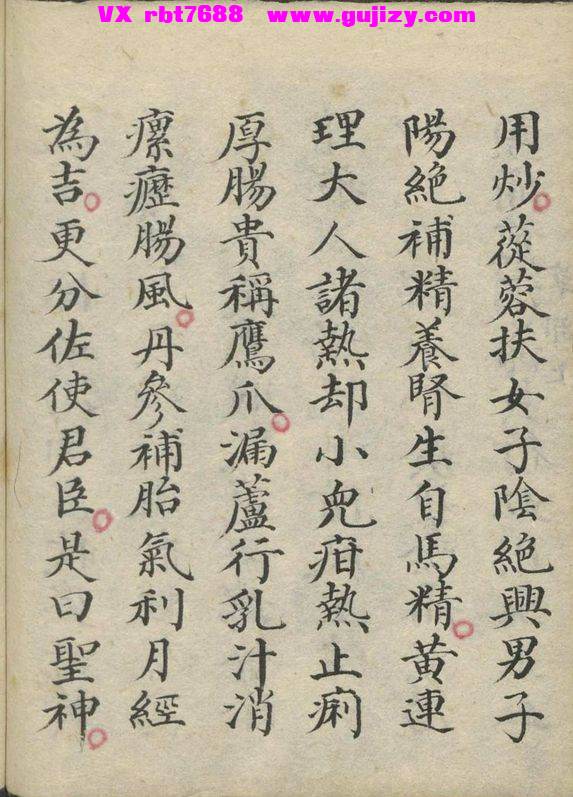 VX rbt7688 www.gujizy.com
用炒。蓯蓉扶女子陰絕興男子
陽絕補精養腎生自馬精。黃連
理大人諸熱却小兒疳熱止痢
厚腸貴稱鷹爪。漏蘆行乳汁消
瘰癧腸風。丹參補胎氣利月經
為吉。更分佐使君臣。是曰聖神。